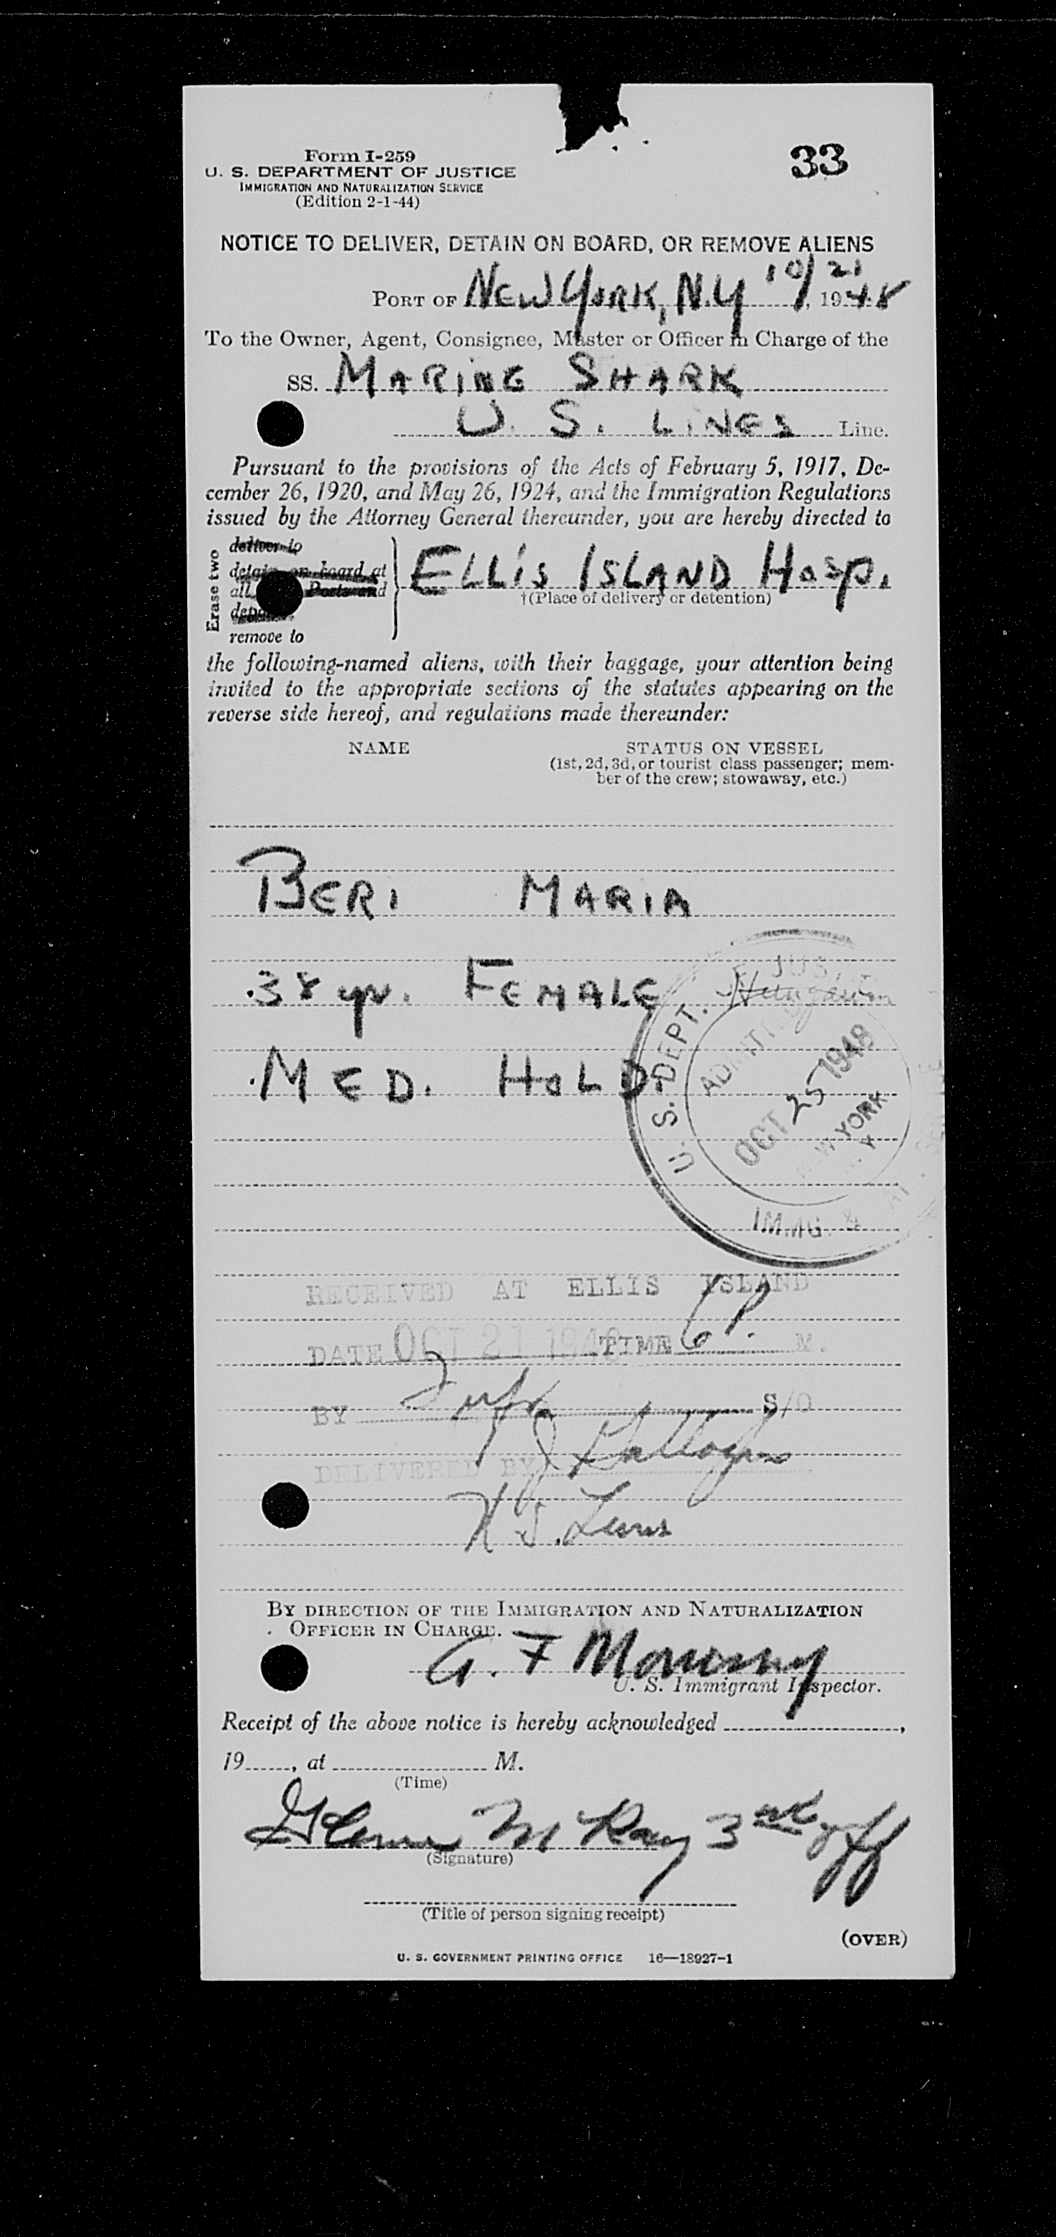 Form I-259
33
U. S. DEPARTMENT OF JUSTICE
IMMIGRATION AND NATURALIZATION SERVICE
(Edition 2-1-44)
NOTICE TO DELIVER, DETAIN ON BOARD, OR REMOVE ALIENS
PORT OF NEW YORK, N.Y 10/21, 1948
To the Owner, Agent, Consignee, Master or Officer in Charge of the
SS. MARINE SHARK
U. S. LINES Line.
Pursuant to the provisions of the Acts of February 5, 1917, De-
cember 26, 1920, and May 26, 1924, and the Immigration Regulations
issued by the Attorney General thereunder, you are hereby directed to
Erase two
deliver to
detain on board at
all Ports and
remove to
ELLIS ISLAND HOSP.
†(Place of delivery or detention)
the following-named aliens, with their baggage, your attention being
invited to the appropriate sections of the statutes appearing on the
reverse side hereof, and regulations made thereunder:
NAME
STATUS ON VESSEL
(1st, 2d, 3d, or tourist class passenger; mem-
ber of the crew; stowaway, etc.)
BERI MARIA
38 yr. FEMALE Hungarian
MED. HOLD.
U. S. DEPT. JUS.
OCT 25 1948
NEW YORK
IMMG. &
RECEIVED AT ELLIS ISLAND
DATE OCT 21 1948 TIME 6 P. M.
BY S/O
DELIVERED BY J Gallagher
BY DIRECTION OF THE IMMIGRATION AND NATURALIZATION
OFFICER IN CHARGE.
U. S. Immigrant Inspector.
Receipt of the above notice is hereby acknowledged ,
19 , at M.
(Time)
McKay 3rd off
(Signature)
(Title of person signing receipt)
(OVER)
U. S. GOVERNMENT PRINTING OFFICE 16—18927-1